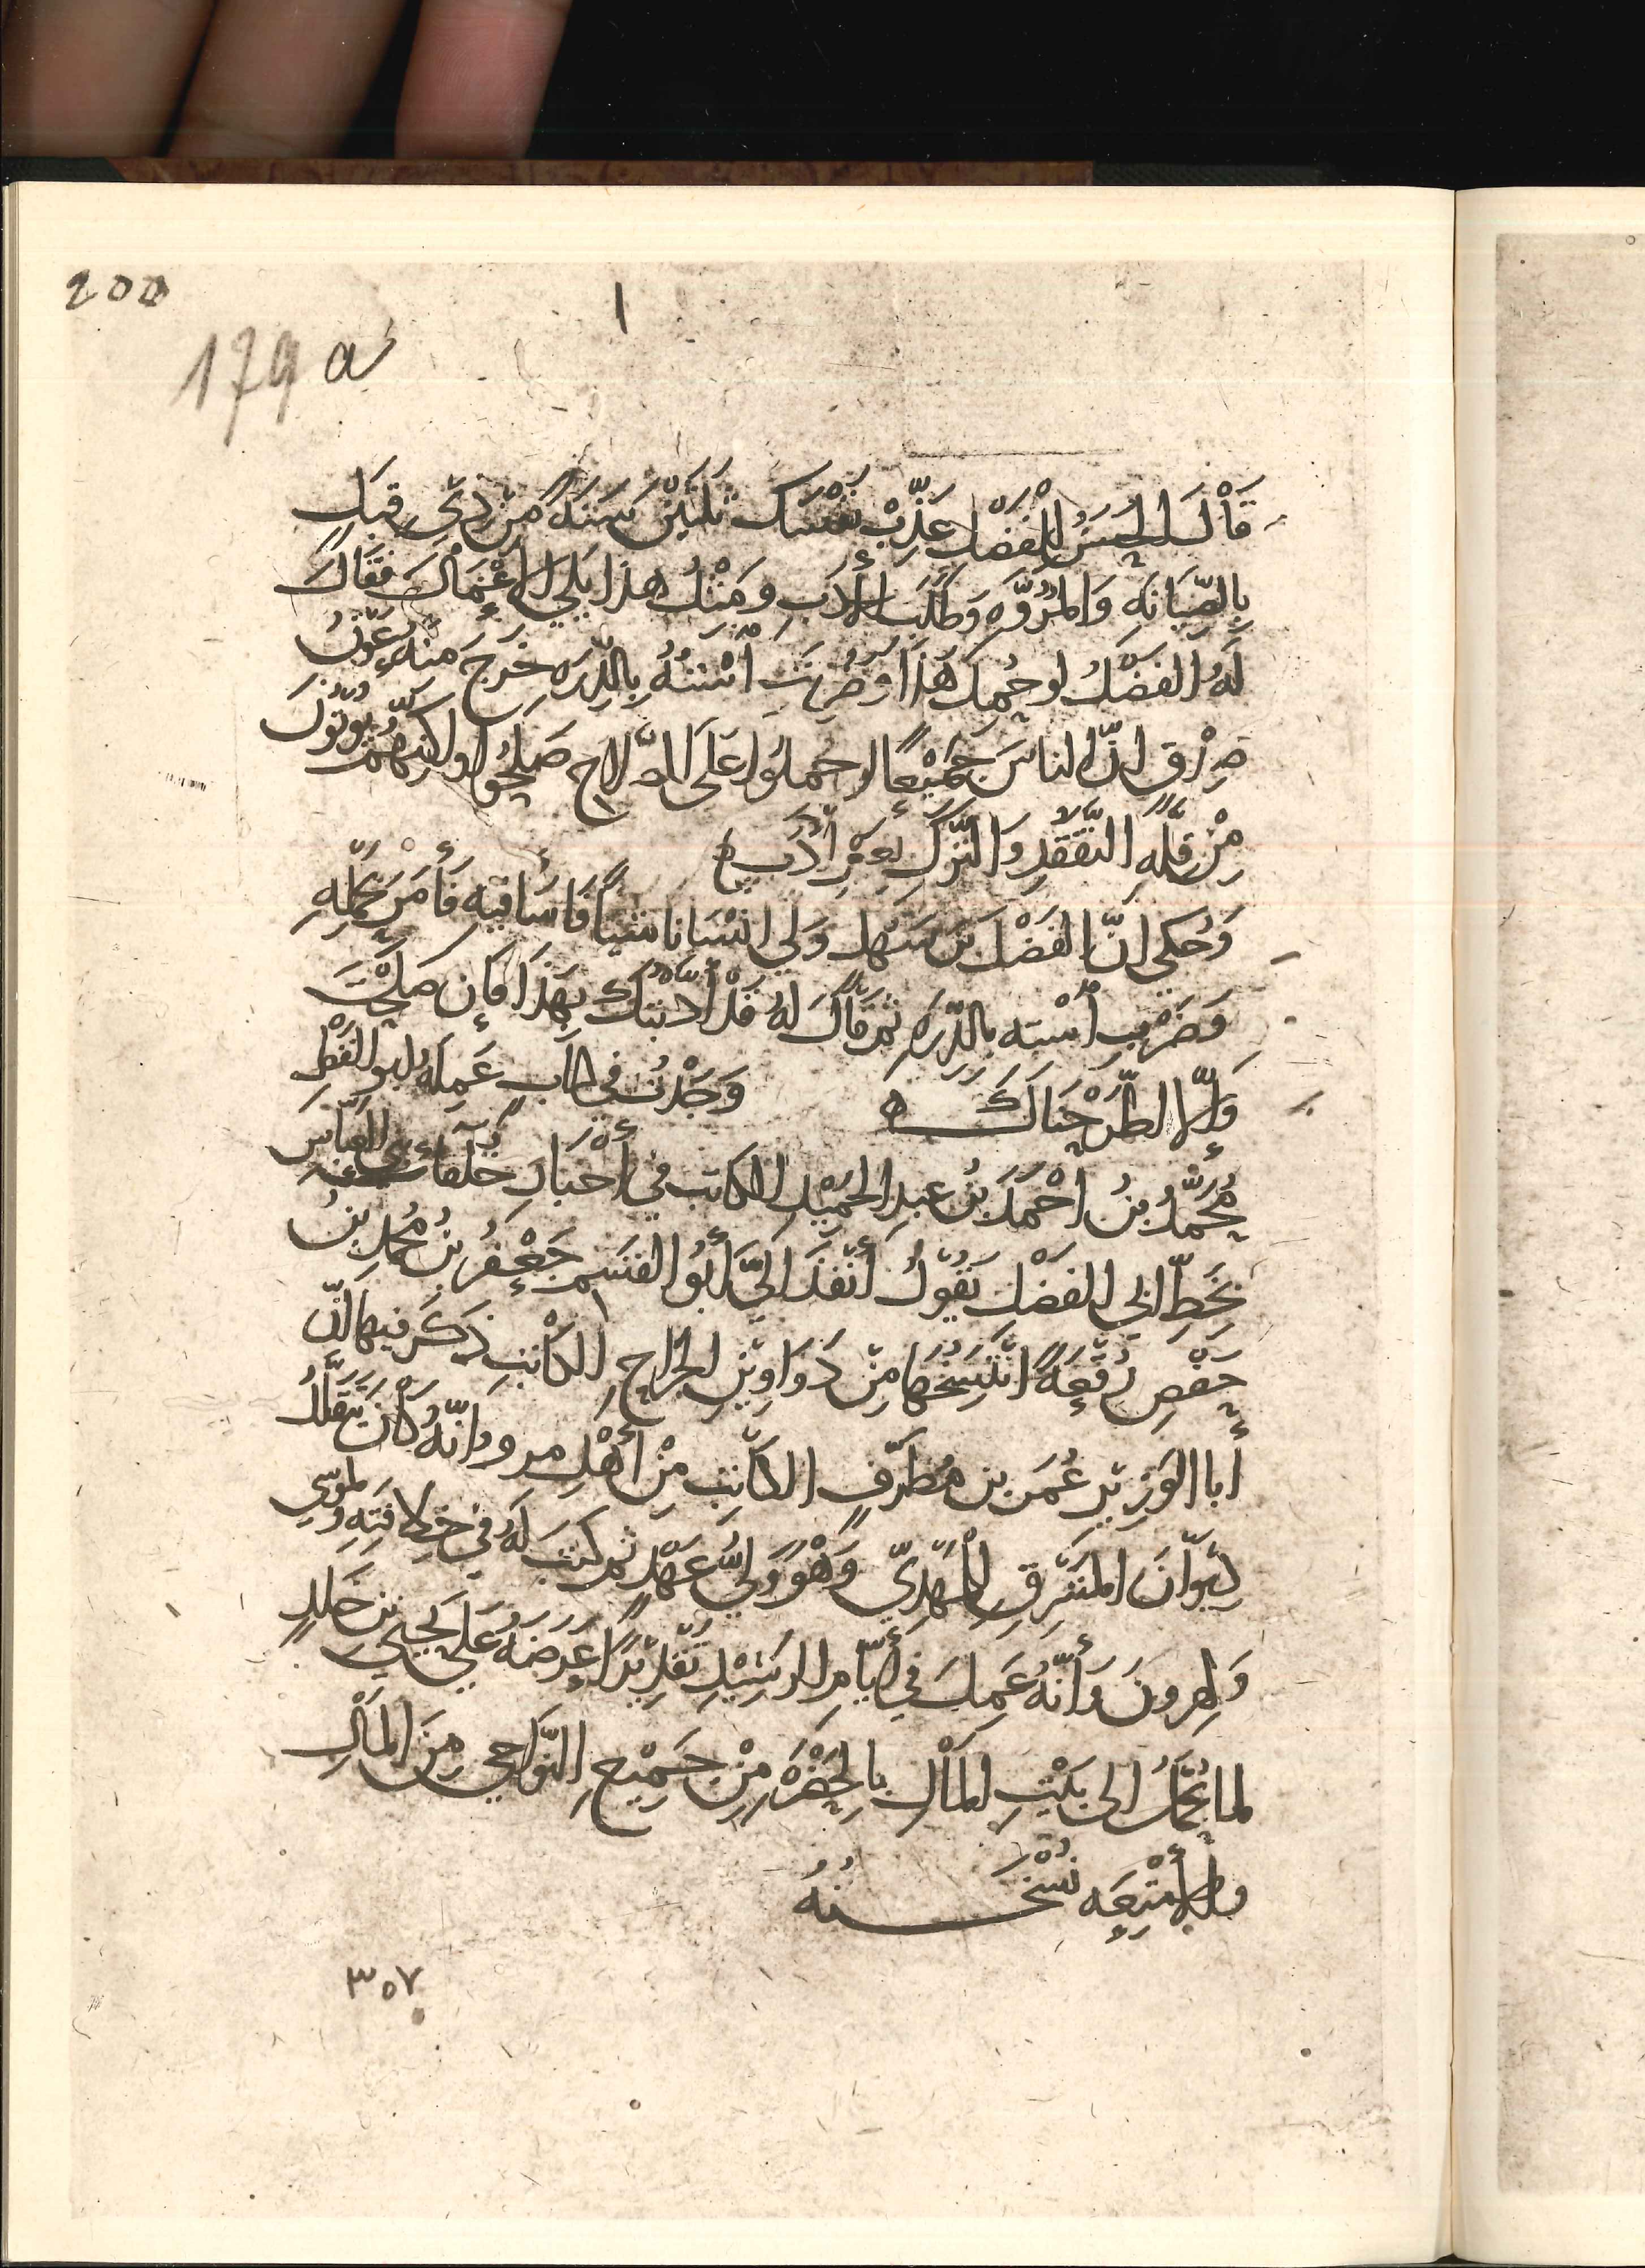 200
179 a
قَاْلَ الحسَنُ للفَضْل عَذَّبْتَ نفْسَك ثلثِيْنَ سَنَةً مِنْ ذِي قبَلٍ
بِالصِّيَانَه وَالمُرُوَّه وَطَلَبَ الأَدَبِ وَمِثْلُ هذا يَلِي الأَعْمَالَ فقَالَ
لَهُ الفَضْلُ لو حُمِلَ هَذَا وَضُرِبَتِ اسْتُهُ بِالدِّرَه خَرَجَ منه عَوْنُ
صِدْقٍ انَّ الناسَ جَمِيْعًا لو حملُوا عَلَى الصَّلاح صَلحُوا ولكنهُمْ يُؤْتَوْنَ
مِنْ قلَّهِ التَّفَقُّدِ وَالتَّرْكِ بِغَيْرِ أَدَبٍ ه
وَحُكي انَّ الفَضْلَ بنَ سَهْل وَلي انسَانا شيئًا فَأَسَا فيْهِ فَأَمَرَ بحَمْلِهِ
وَضَرْبِ أسْته بِالدِّرَه ثم قَالَ لهُ قَدْ أَدَّبْتُكَ بِهَذَا فَإِن صَلَحْتَ
وَإِلاَّ اطَّرَحْنَاكَ ه وَجَدْتُ في كتَابٍ عَمِلَهُ ابو الفَضْلِ
مُحَمَّدُ بنُ احْمَدَ بْنِ عبدِ الحَمِيْدِ الكاتب في أَخْبَارِ خُلَفَاءِ بَنِي العبَّاسِ
بِخَطِّ ابي الفَضْلِ يَقُوْلُ أَنْفَذَ اليَّ أَبُو القسَم جَعْفَرُ بنُ مُحمدِ بنِ
حَفْصٍ رُقْعَةً انْتَسَخَهَا مِنْ دَوَاوِيْنِ الخَرَاجِ الكَاْتبِ ذَكَرَ فيها انَّ
أبا الوَزِيْر عُمَرَ بن مُطَرِّفٍ الكَاتِبَ مِنْ أَهْلِ مرو وَانَّهُ كَاْنَ يَتَقَلَّدُ
دِيْوَانَ المَشْرِقِ لِلْمَهْدِيّ وَهْوَ وَلِيُّ عَهْدٍ ثم كتبَ لَهُ في خِلافتِهِ ولموسى
وَلهرونَ وَأَنَّهُ عَمِلَ في أَيَّامِ الرَشِيْدِ تَقْدِيْرًا عَرَضَهُ عَلَى يَحيَى بنِ خَلدٍ
لما يُحْمَلُ الى بَيْتِ المَالِ بالحَضْرَةِ مِنْ جَمِيْعِ النَّوَاحي مِنَ المَالِ
والأمْتِعَه نُسْخَتُهُ
٣٥٧